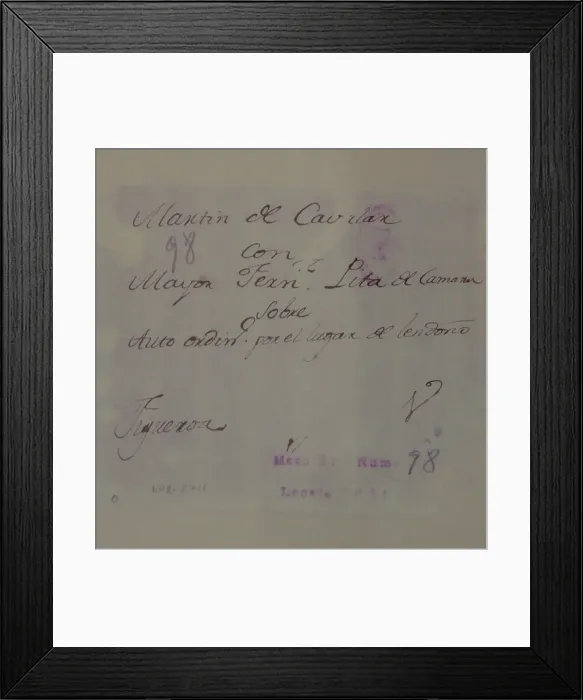 Martin de Cavrlax
98
con
Mayor Fern.ᶻ Pita de Camara
Sobre
Auto ordinº. por el lugar de lendoño
Figueroa
Num. 98